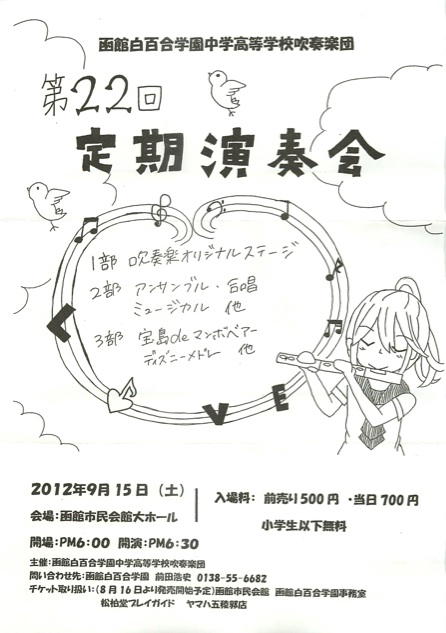 函館白百合学園中学高等学校吹奏楽団
第22回
定期演奏会
1部 吹奏楽オリジナルステージ
2部 アンサンブル・合唱
ミュージカル 他
3部 宝島deマンボベアー
ディズニーメドレー 他
L
V
E
2012年9月15日(土)
会場:函館市民会館大ホール
開場:PM6:00 開演:PM6:30
入場料: 前売り500円 ・当日700円
小学生以下無料
主催:函館白百合学園中学高等学校吹奏楽団
問い合わせ先:函館白百合学園 前田浩史 0138-55-6682
チケット取り扱い:(8月16日より発売開始予定)函館市民会館 函館白百合学園事務室
松柏堂プレイガイド ヤマハ五稜郭店